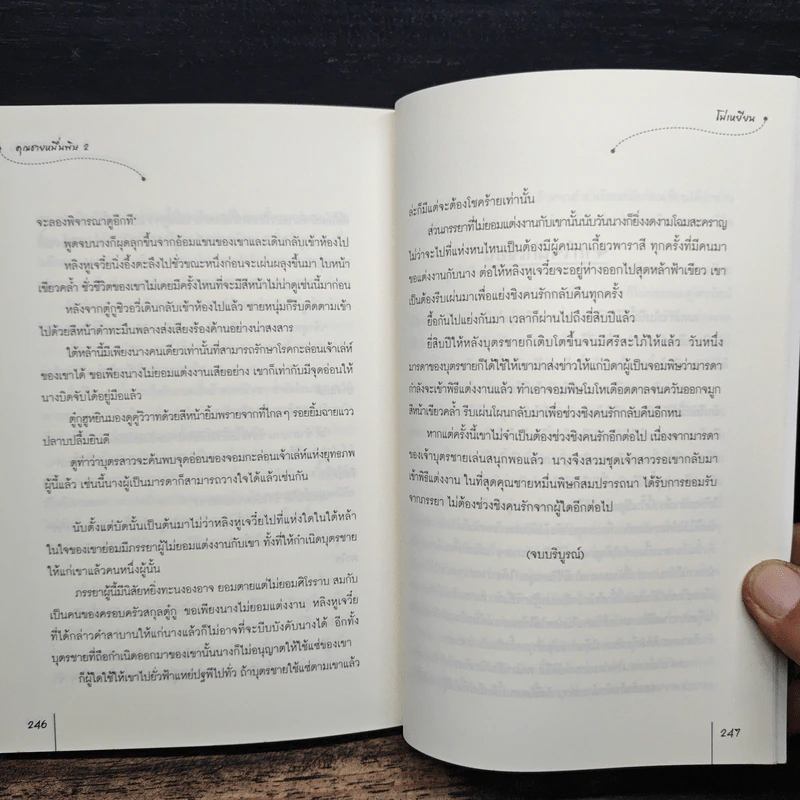 คุณชายหมื่นพิษ 2
จะลองพิจารณาดูอีกที"
พูดจบนางก็ผุดลุกขึ้นจากอ้อมแขนของเขาและเดินกลับเข้าห้องไป
หลิงหูเจวี๋ยนิ่งอึ้งตะลึงไปชั่วขณะหนึ่งก่อนจะเผ่นผลุงขึ้นมา ใบหน้า
เขียวคล้ำ ชั่วชีวิตของเขาไม่เคยมีครั้งไหนที่จะมีสีหน้าไม่น่าดูเช่นนี้มาก่อน
หลังจากตู๋กูชิวอวี่เดินกลับเข้าห้องไปแล้ว ชายหนุ่มก็รีบติดตามเข้า
ไปด้วยสีหน้าดำทะมึนพลางส่งเสียงร้องค้านอย่างน่าสงสาร
ใต้หล้านี้มีเพียงนางคนเดียวเท่านั้นที่สามารถรักษาโรคกะล่อนเจ้าเล่ห์
ของเขาได้ ขอเพียงนางไม่ยอมแต่งงานเสียอย่าง เขาก็เท่ากับมีจุดอ่อนให้
นางบิดจับได้อยู่มือแล้ว
ตู๋กูฮูหยินมองดูคู่วิวาทด้วยสีหน้ายิ้มพรายจากที่ไกลๆ รอยยิ้มฉายแวว
ปลาบปลื้มยินดี
ดูท่าว่าบุตรสาวจะค้นพบจุดอ่อนของจอมกะล่อนเจ้าเล่ห์แห่งยุทธภพ
ผู้นี้แล้ว เช่นนี้นางผู้เป็นมารดาก็สามารถวางใจได้แล้วเช่นกัน
นับตั้งแต่บัดนั้นเป็นต้นมาไม่ว่าหลิงหูเจวี๋ยไปที่แห่งใดในใต้หล้า
ในใจของเขาย่อมมีภรรยาผู้ไม่ยอมแต่งงานกับเขา ทั้งที่ให้กำเนิดบุตรชาย
ให้แก่เขาแล้วคนหนึ่งผู้นั้น
ภรรยาผู้นี้มีนิสัยหยิ่งทะนงองอาจ ยอมตายแต่ไม่ยอมศิโรราบ สมกับ
เป็นคนของครอบครัวสกุลตู๋กู ขอเพียงนางไม่ยอมแต่งงาน หลิงหูเจวี๋ย
ที่ได้กล่าวคำสาบานให้แก่นางแล้วก็ไม่อาจที่จะบีบบังคับนางได้ อีกทั้ง
บุตรชายที่ถือกำเนิดออกมาของเขานั้นนางก็ไม่อนุญาตให้ใช้แซ่ของเขา
ก็ผู้ใดใช้ให้เขาไปยั่วฟ้าแหย่ปฐพีไปทั่ว ถ้าบุตรชายใช้แซ่ตามเขาแล้ว
246
โม่เหยียน
ล่ะก็มีแต่จะต้องโชคร้ายเท่านั้น
ส่วนภรรยาที่ไม่ยอมแต่งงานกับเขานั้นนับวันนางก็ยิ่งงดงามโฉมสะคราญ
ไม่ว่าจะไปที่แห่งหนไหนเป็นต้องมีผู้คนมาเกี้ยวพาราสี ทุกครั้งที่มีคนมา
ขอแต่งงานกับนาง ต่อให้หลิงหูเจวี๋ยจะอยู่ห่างออกไปสุดหล้าฟ้าเขียว เขา
เป็นต้องรีบเผ่นมาเพื่อแย่งชิงคนรักกลับคืนทุกครั้ง
ยื้อกันไปแย่งกันมา เวลาก็ผ่านไปถึงยี่สิบปีแล้ว
ยี่สิบปีให้หลังบุตรชายก็เติบโตขึ้นจนมีศรีสะใภ้ให้แล้ว วันหนึ่ง
มารดาของบุตรชายก็ได้ใช้ให้เขามาส่งข่าวให้แก่บิดาผู้เป็นจอมพิษว่ามารดา
กำลังจะเข้าพิธีแต่งงานแล้ว ทำเอาจอมพิษโมโหเดือดดาลจนควันออกจมูก
สีหน้าเขียวคล้ำ รีบเผ่นโผนกลับมาเพื่อช่วงชิงคนรักกลับคืนอีกหน
หากแต่ครั้งนี้เขาไม่จำเป็นต้องช่วงชิงคนรักอีกต่อไป เนื่องจากมารดา
ของเจ้าบุตรชายเล่นสนุกพอแล้ว นางจึงสวมชุดเจ้าสาวรอเขากลับมา
เข้าพิธีแต่งงาน ในที่สุดคุณชายหมื่นพิษก็สมปรารถนา ได้รับการยอมรับ
จากภรรยา ไม่ต้องช่วงชิงคนรักจากผู้ใดอีกต่อไป
(จบบริบูรณ์)
247